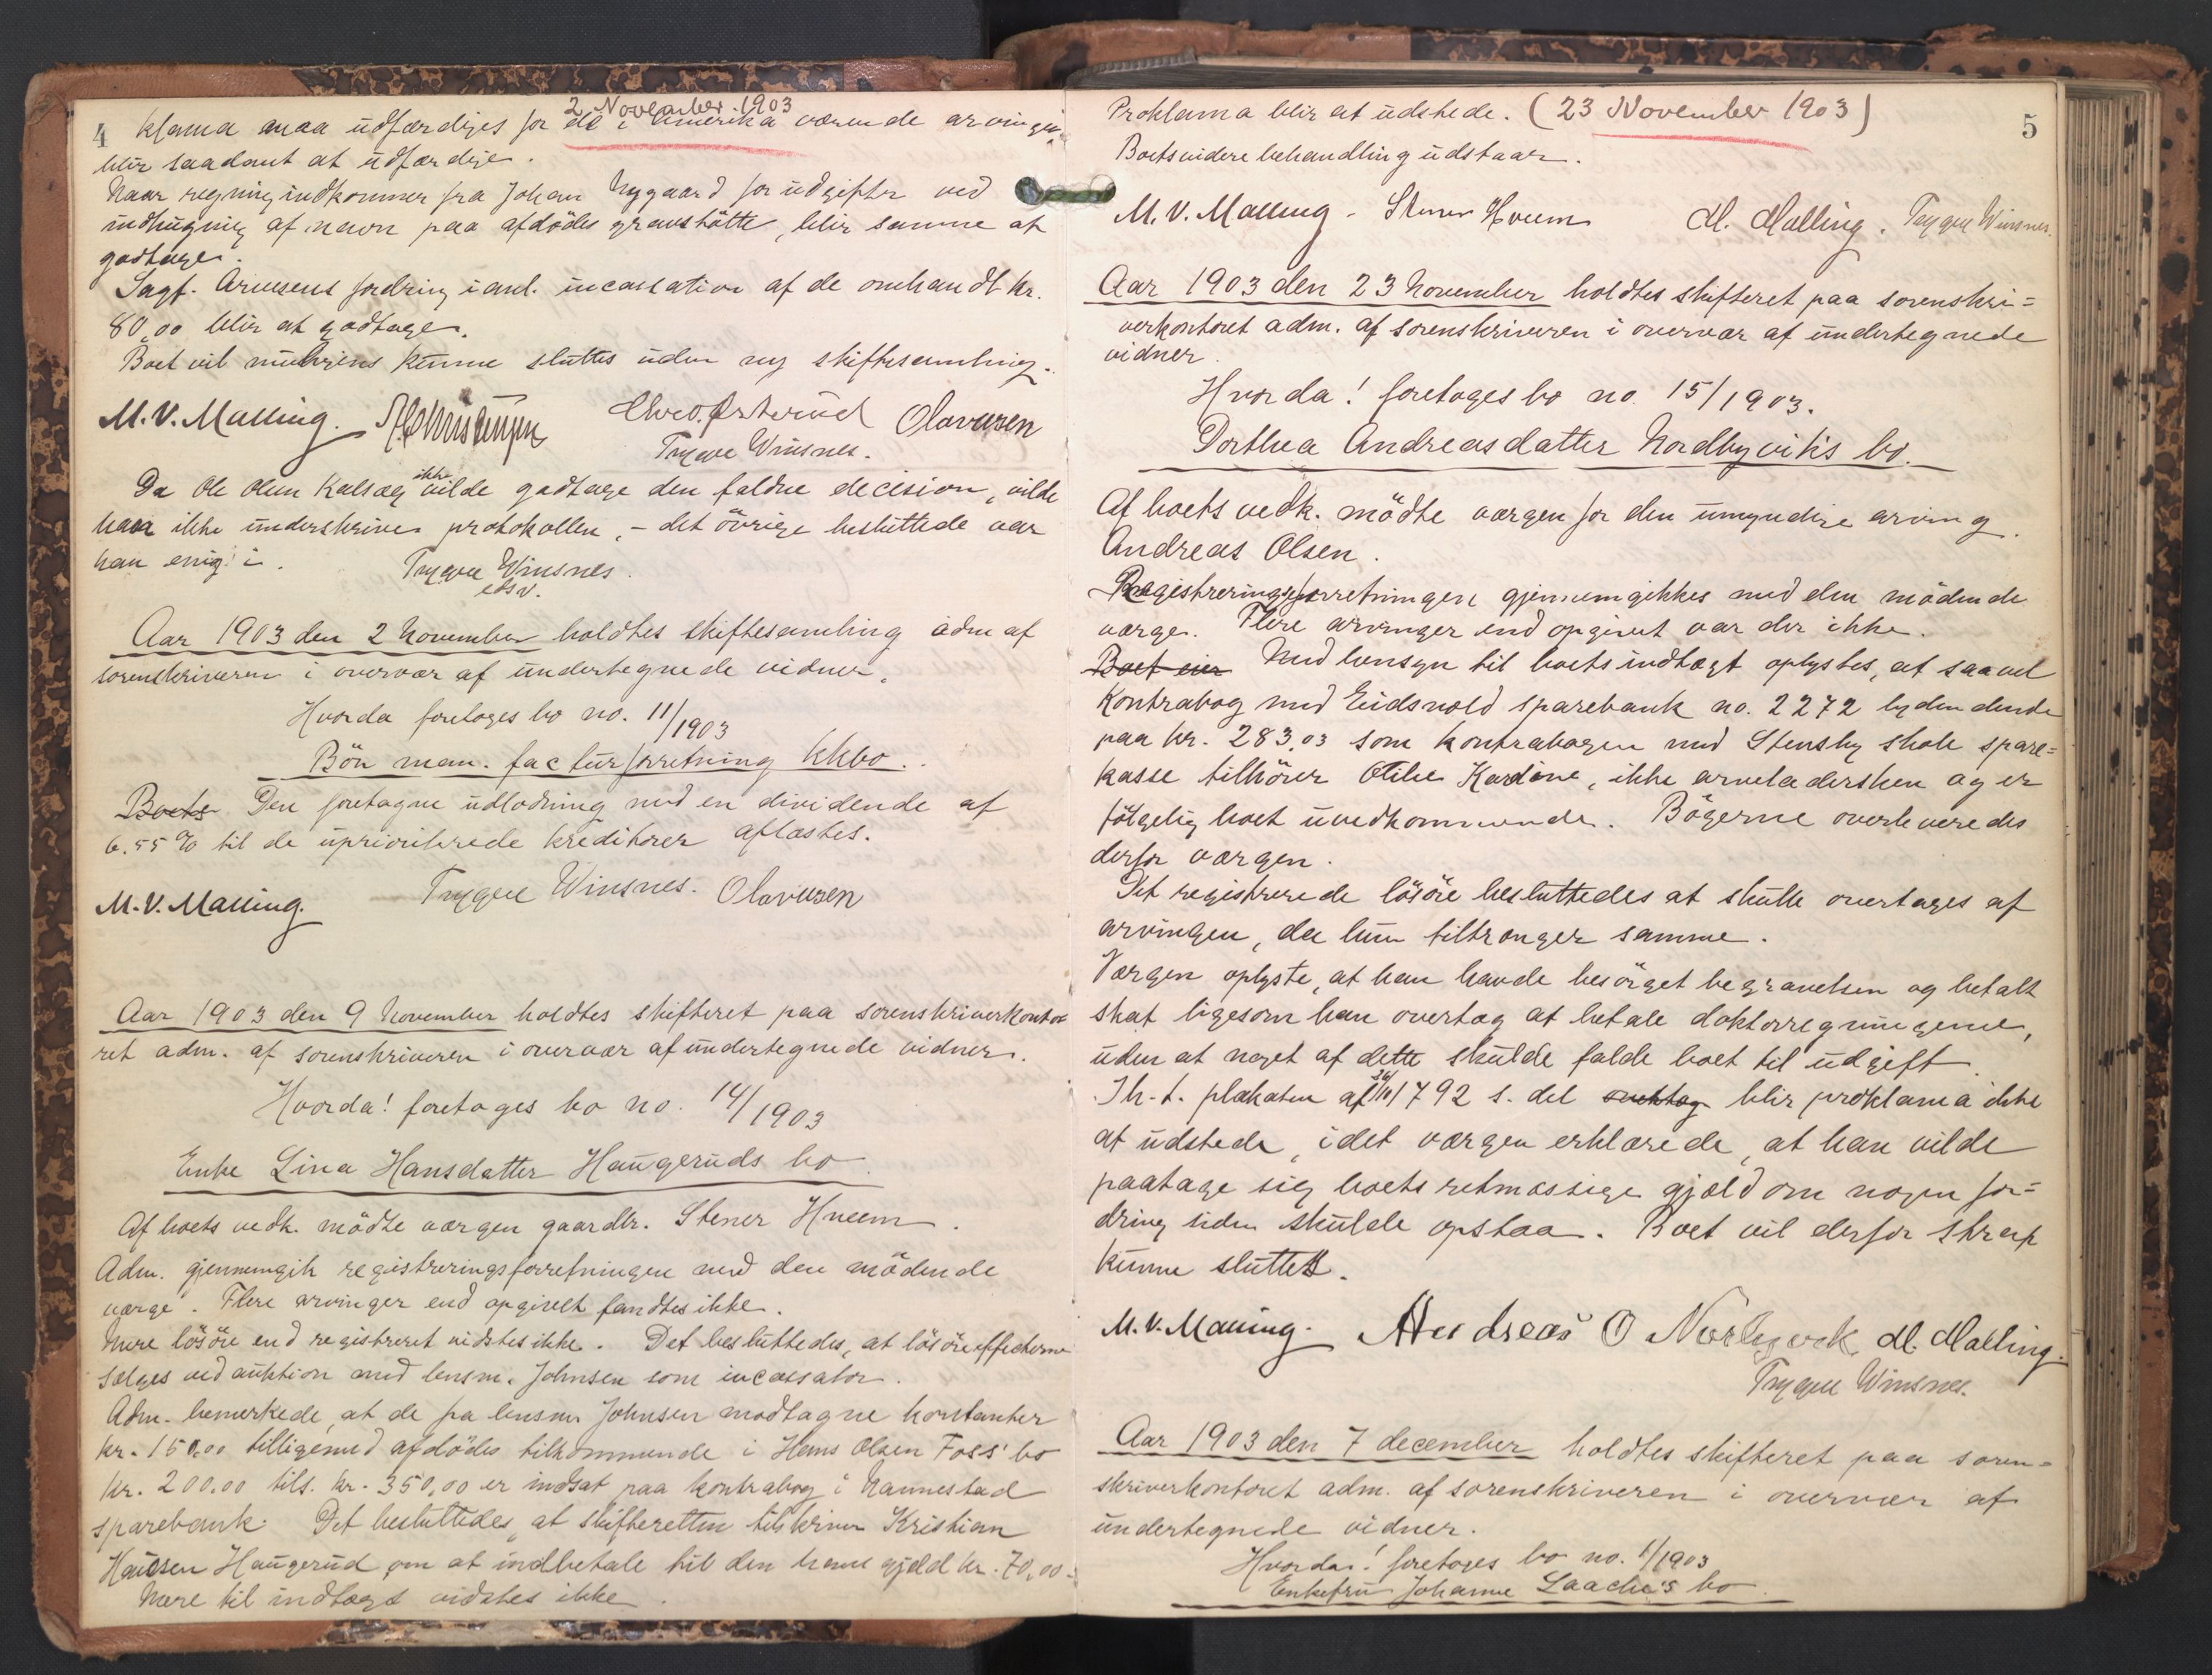 4
2 November 1903
klama maa udfærdiges for de i Amerika værende arvinger,
blir saadant at udfærdige.
Naar regning indkommer fra Johan Nygaard for udgifter ved
indhugning af navn paa afdødes gravstøtte, blir samme at
godtages.
Sagf. Arnesens fordring i anl. incassation af de omhandl. kr.
80,00 blir at godtage.
Boet vil muligens kunne sluttes uden ny skiftesamling.
M.V. Malling. Chr. O. Østerud Olavesen
Trygve Winsnes.
Da Ole Olsen Kalsæg ikke vilde godtage den faldne decision, vilde
han ikke underskrive protokollen, - det övrige besluttede var
han enig i. Trygve Winsnes.
Aar 1903 den 2 November holdtes skiftesamling adm af
sorenskriveren i overvær af undertegnede vidner.
Hvorda foretoges bo no. 11/1903
Bön man. facturforretning kkbo.
Boets Den foretagne udlodning med en dividende af
6.55 % til de uprioriterede kreditorer aflæstes.
M.V. Malling. Trygve Winsnes. Olavesen
Aar 1903 den 9 November holdtes skifteret paa sorenskriverkonto
ret adm. af sorenskriveren i overvær af undertegnede vidner.
Hvorda! foretoges bo no. 14/1903
Enke Lina Hansdatter Haugeruds bo.
Af boets vedk. mödte værgen gaardbr. Stener Hveem.
Adm. gjennemgik registreringsforretningen med den mödende
værge. Flere arvinger end opgivet fandtes ikke.
Mere lösöre end registreret vidstes ikke. Det besluttedes, at lösöreeffecterne
sælges ved auktion med lensm. Johnsen som incassator.
Adm. bemerkede, at de fra lensm Johnsen modtagne kontanter
kr. 150.00 tilligemed afdödes tilkommende i Hans Olsen Foss' bo
kr. 200.00 tils. kr. 350,00 er indsat paa kontrabog i Nannestad
sparebank. Det besluttedes, at skifteretten tilskriver Kristian
Hansen Haugerud om at indbetale til den hans gjæld kr. 70,00.
Mere til indtægt vidstes ikke.
5
Proklama blir at udstede. (23 November 1903)
Boets videre behandling udstaar.
M.V. Malling - Stener Hveem M. Malling. Trygve Winsnes.
Aar 1903 den 23 November holdtes skifteret paa sorenskri=
verkontoret adm. af sorenskriveren i overvær af undertegnede
vidner.
Hvorda! foretoges bo no. 15/1903.
Dorthea Andreasdatter Nordbyviks bo.
Af boets vedk. mödte værgen for den umyndige arving
Andreas Olsen.
Registreringsforretningen gjennemgikkes med den mödende
værge. Flere arvinger end opgivet var der ikke.
Boet eier Med hensyn til boets indtægt oplystes, at saavel
kontrabog med Eidsvold sparebank no. 2272 lydendende
paa kr. 283,03 som kontrabogen med Stensby skole spare=
kasse tilhörer Otilie Karoline, ikke arveladersken og er
fölgelig boet uvedkommende. Bögerne overleveredes
derfor værgen.
Det registrerede lösöre besluttedes at skulle overtages af
arvingen, da hun tiltrænger samme.
Værgen oplyste, at han havde besörget begravelsen og betalt
skat ligesom han overtog at betale doktorregningene,
uden at noget af dette skulde falde boet til udgift.
Ih.t. plakaten af 26/10 1792 s. del blir proklama ikke
at udstede, idet værgen erklærede, at han vilde
paatage sig boets retmæssige gjæld om nogen for=
dring siden skulde opstaa. Boet vil derfor strax
kunne sluttes.
M.V. Malling. Andreas O Norbyvik M. Malling.
Trygve Winsnes.
Aar 1903 den 7 december holdtes skifteret paa soren=
skriverkontoret adm. af sorenskriveren i overvær af
undertegnede vidner.
Hvorda! foretoges bo no. 1/1903
Enkefru Johanne Laache's bo.